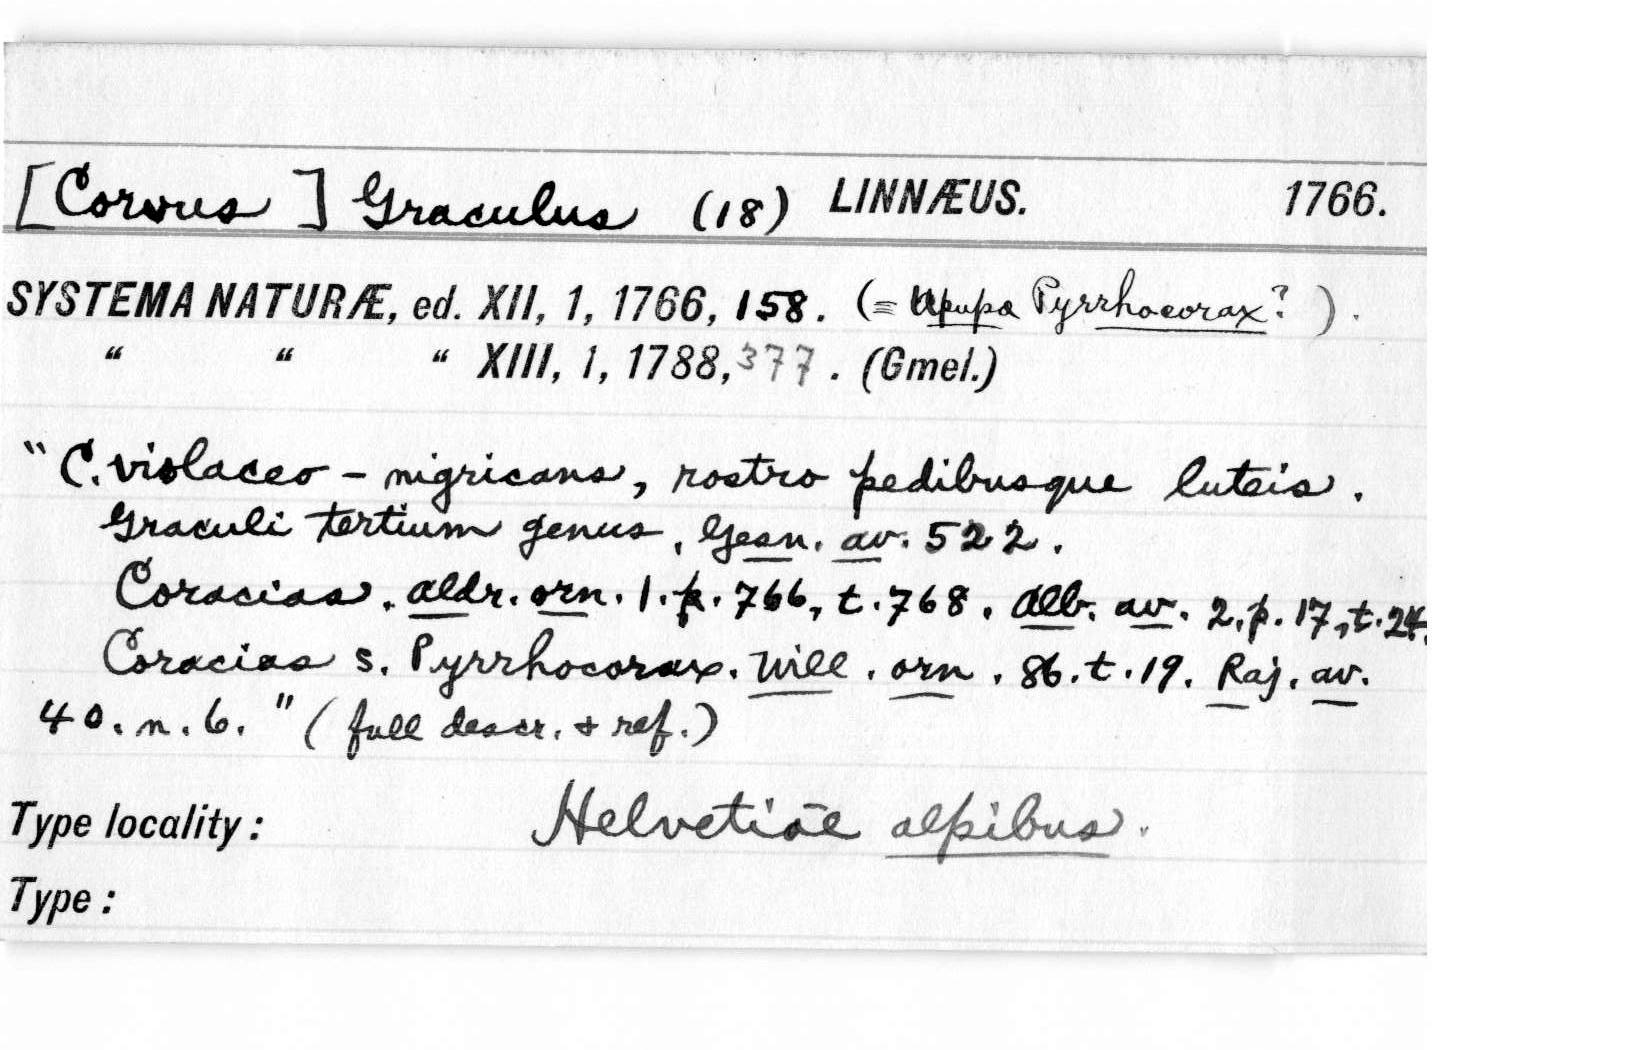 [Corvus ] Graculus (18) LINNÆUS. 1766.
SYSTEMA NATURÆ, ed. XII, 1, 1766, 158. (= Upupa Pyrrhocorax? ) .
" " " XIII, 1, 1788, 377 . (Gmel.)
"C. violaceo - nigricans, rostro pedibusque luteis .
Graculi tertium genus , Gesn. av. 522 .
Coracias . aldr. orn. 1. p. 766, t. 768 . Alb. av. 2, p. 17, t. 24.
Coracias s. Pyrrhocorax. Will . orn . 86. t. 19. Raj. av.
40. n. 6. " (full descr. & ref.)
Type locality : Helvetiae alpibus .
Type :